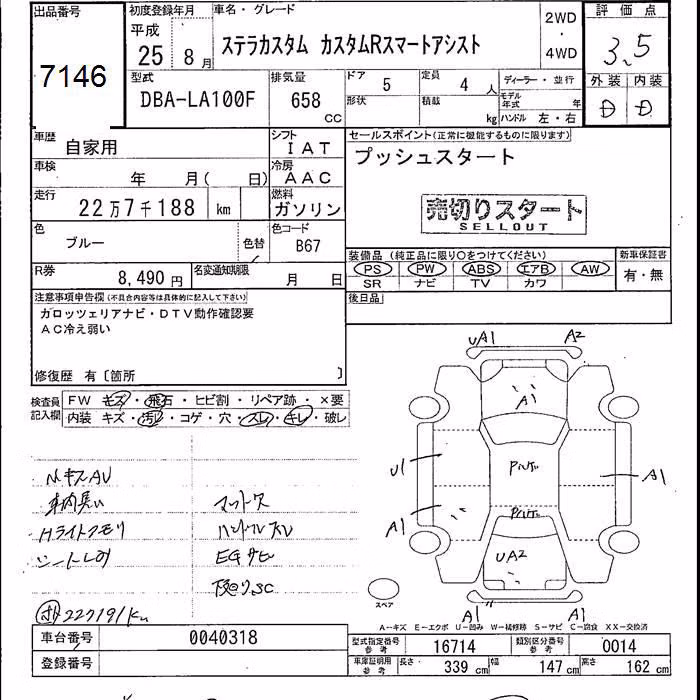 出品番号
7146
初度登録年月
平成
25 8月
車名・グレード
ステラカスタム カスタムRスマートアシスト
2WD
・
4WD
評価点
3.5
外装 内装
D D
型式
DBA-LA100F
排気量
658
CC
ドア 5
定員 4人
形状
積載 kg
ディーラー・並行
モデル年式 年
ハンドル 左・右
車歴 自家用
シフト IAT
車検 年 月( 日)
冷房 AAC
走行 22万7千188 km
燃料 ガソリン
色 ブルー
色替
色コード B67
R券 8,490円
名変通知期限 月 日
セールスポイント(正常に機能するものに限ります)
プッシュスタート
売切りスタート
SELLOUT
装備品(純正品に限り○をつけてください)
新車保証書
PS PW ABS エアB AW
SR ナビ TV カワ
有・無
後日品
注意事項申告欄(不具合内容等は具体的に記入して下さい)
カロッツェリアナビ・DTV動作確認要
AC冷え弱い
修復歴 有〔箇所 〕
検査員記入欄
FW キズ・飛石・ヒビ割・リペア跡・×要
内装 キズ・汚レ・コゲ・穴・スレ・キレ・破レ
Hライトクモリ
ハンドルスレ
EGサビ
227191km
UA1
A2
A1
U1
A1
A1
UA2
A1
A1
スペア
A-キズ E-エクボ U-凹み W-補修跡 S-サビ C-腐食 XX-交換済
車台番号 0040318
登録番号
型式指定番号 参考 16714
類別区分番号 参考 0014
車庫証明用 参考
長さ 339cm 幅 147cm 高さ 162cm